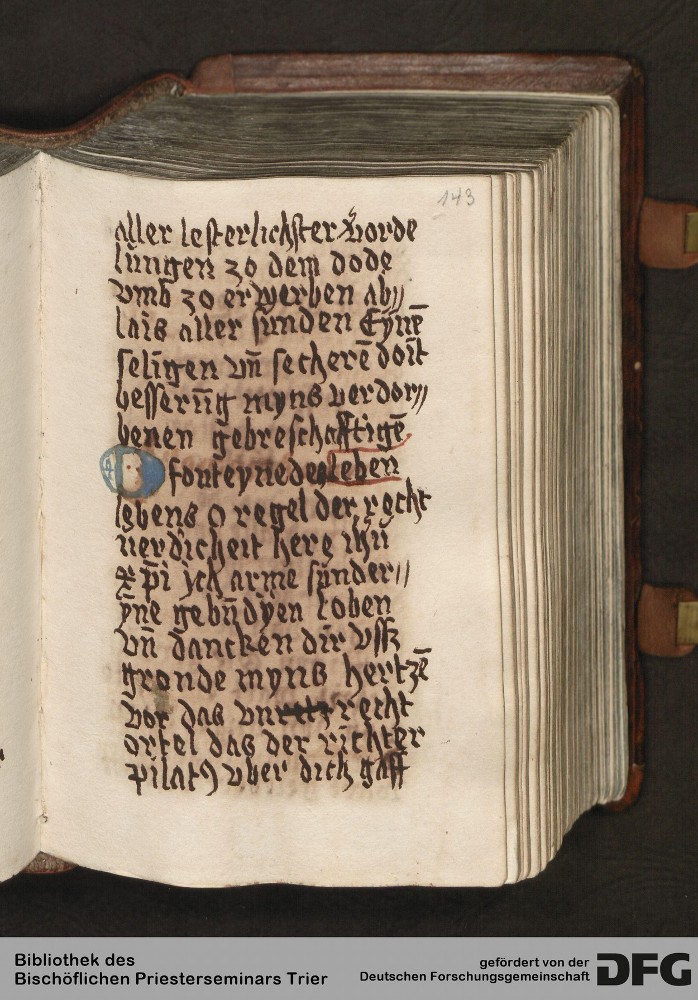 143
aller lesterlichster vorde
lūngen zo dem dode
vmb zo erwerben ab〃
lais aller sunden Eynē
seligen vn̄ secherē doit
besserūg myns verdor〃
benen gebreschafftigē
fonteyne des leben
lebens O regel der recht
uerdicheit here ihū
xp̄i jch arme sunder〃
yne gebūdyen loben
vn̄ dancken dir vsß
gronde myns hertzē
vor das vn recht
ortel das der richter
pilatꝰ vber dich gaff
Bibliothek des
Bischöflichen Priesterseminars Trier
gefördert von der
Deutschen Forschungsgemeinschaft
DFG